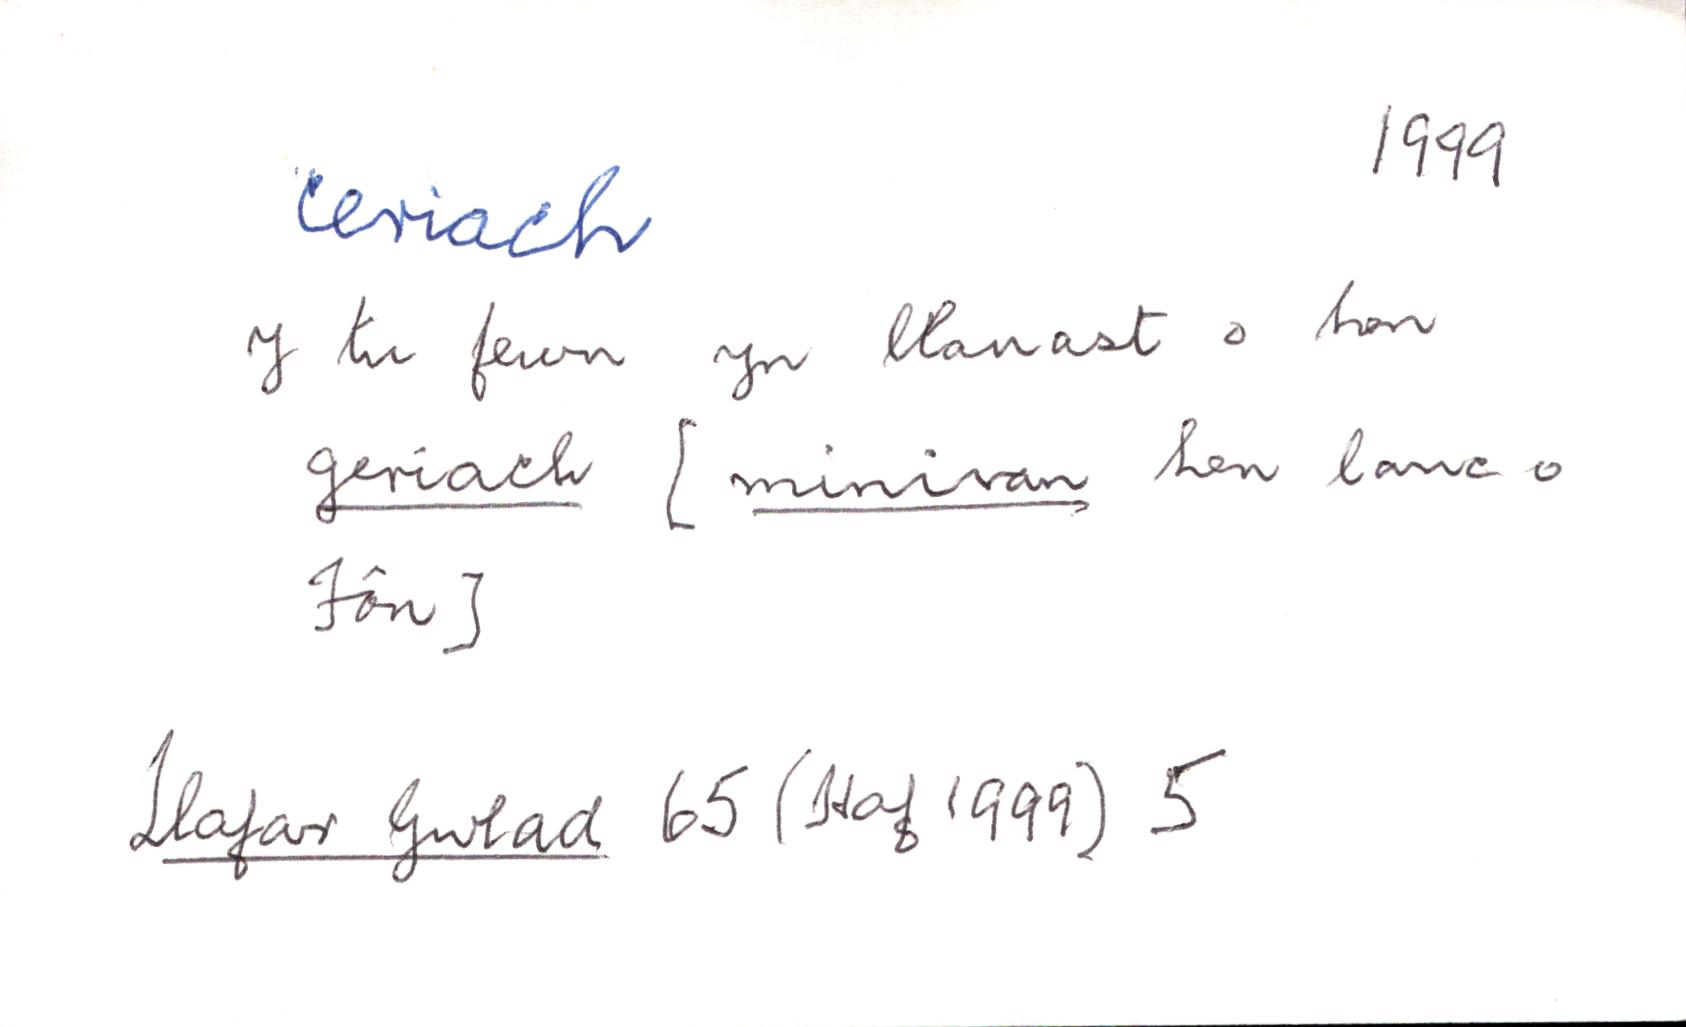 1999
ceriach
y tu fewn yn llanast o hen
geriach [minivan hen lanc o
Fôn]
Llafar Gwlad 65 (Haf 1999) 5